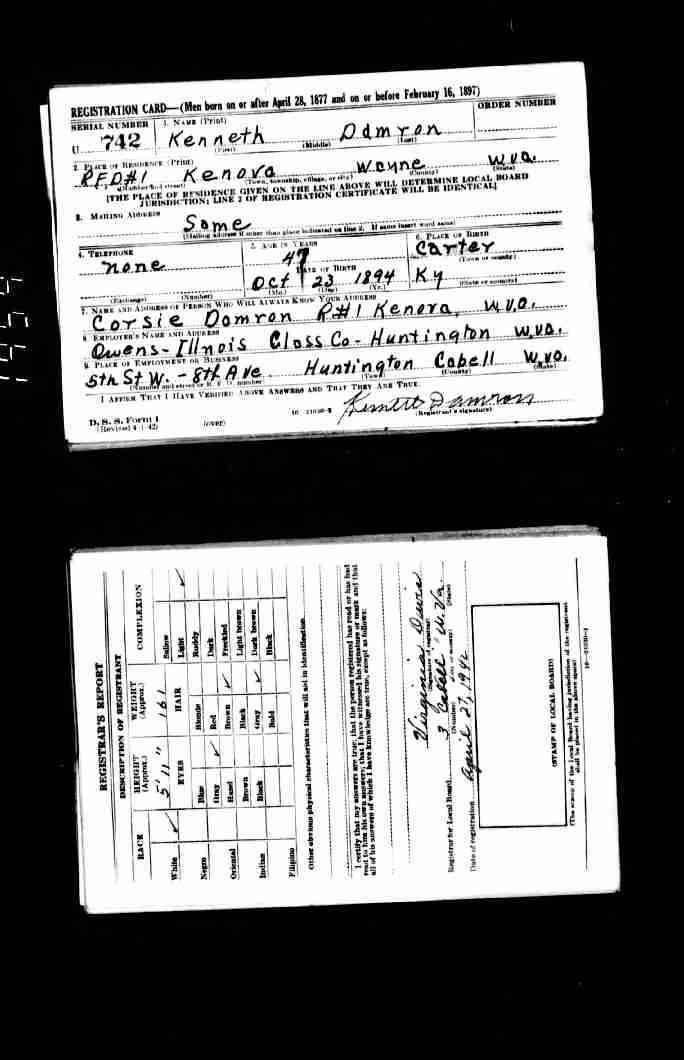 REGISTRATION CARD—(Men born on or after April 28, 1877 and on or before February 16, 1897)
SERIAL NUMBER 1. NAME (Print) ORDER NUMBER
U 742 Kenneth Damron
(First) (Middle) (Last)
2. PLACE OF RESIDENCE (Print)
RFD#1 Kenova Wayne W.va.
(Number and street) (Town, township, village, or city) (County) (State)
[THE PLACE OF RESIDENCE GIVEN ON THE LINE ABOVE WILL DETERMINE LOCAL BOARD
JURISDICTION; LINE 2 OF REGISTRATION CERTIFICATE WILL BE IDENTICAL]
3. MAILING ADDRESS
Same
(Mailing address if other than place indicated on line 2. If same insert word same)
4. TELEPHONE 5. AGE IN YEARS 6. PLACE OF BIRTH
none 47 Carter
(Town or county)
DATE OF BIRTH
Oct 23 1894 Ky
(Exchange) (Number) (Mo.) (Day) (Yr.) (State or country)
7. NAME AND ADDRESS OF PERSON WHO WILL ALWAYS KNOW YOUR ADDRESS
Corsie Damron R#1 Kenova, W.va.
8. EMPLOYER'S NAME AND ADDRESS
Owens-Illnois Glass Co- Huntington W.va.
9. PLACE OF EMPLOYMENT OR BUSINESS
5th St W. - 8th Ave Huntington Cabell W.va.
(Number and street or R. F. D. number) (Town) (County) (State)
I AFFIRM THAT I HAVE VERIFIED ABOVE ANSWERS AND THAT THEY ARE TRUE.
Kenneth Damron
D. S. S. Form 1 (Registrant's signature)
(Revised 4-1-42) (over) 16—21630-2
REGISTRAR'S REPORT
DESCRIPTION OF REGISTRANT
RACE HEIGHT (Approx.) WEIGHT (Approx.) COMPLEXION
White ✓ 5' 11" 161 Sallow
EYES HAIR Light ✓
Negro Blue Blonde Ruddy
Gray ✓ Red Dark
Oriental Hazel Brown ✓ Freckled
Brown Black Light brown
Indian Black Gray ✓ Dark brown
Bald Black
Filipino
Other obvious physical characteristics that will aid in identification
I certify that my answers are true; that the person registered has read or has had
read to him his own answers; that I have witnessed his signature or mark and that
all of his answers of which I have knowledge are true, except as follows:
Virginia Davis
(Signature of registrar)
Registrar for Local Board 3 Cabell W.Va.
(Number) (City or county) (State)
Date of registration April 27, 1942
(STAMP OF LOCAL BOARD)
(The stamp of the Local Board having jurisdiction of the registrant
shall be placed in the above space)
16—21630-1